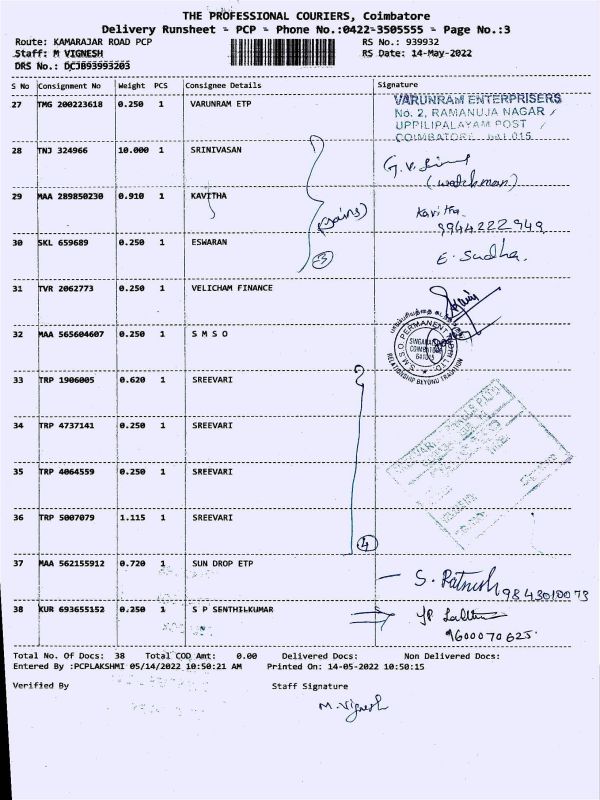 THE PROFESSIONAL COURIERS, Coimbatore
Delivery Runsheet - PCP - Phone No.:0422-3505555 - Page No.:3
Route: KAMARAJAR ROAD PCP RS No.: 939932
Staff: M VIGNESH RS Date: 14-May-2022
DRS No.: DCJB93993203
S No Consignment No Weight PCS Consignee Details Signature
27 TMG 200223618 0.250 1 VARUNRAM ETP
VARUNRAM ENTERPRISERS
No. 2, RAMANUJA NAGAR
UPPILIPALAYAM POST
COIMBATORE - 641 015
28 TNJ 324966 10.000 1 SRINIVASAN G.V.
(watchman)
29 MAA 289850230 0.910 1 KAVITHA Kavitha
9944222949
30 SKL 659689 0.250 1 ESWARAN 3 E. Sudha.
31 TVR 2062773 0.250 1 VELICHAM FINANCE
32 MAA 565604607 0.250 1 S M S O
S.M.S.O PERMANENT
641015
RELATIONSHIP BEYOND TRADITION
33 TRP 1906005 0.620 1 SREEVARI
34 TRP 4737141 0.250 1 SREEVARI
35 TRP 4064559 0.250 1 SREEVARI
36 TRP 5007079 1.115 1 SREEVARI
4
37 MAA 562155912 0.720 1 SUN DROP ETP S. Ratnesh 9843010073
38 KUR 693655152 0.250 1 S P SENTHILKUMAR
9600070625.
Total No. Of Docs: 38 Total COD Amt: 0.00 Delivered Docs: Non Delivered Docs:
Entered By :PCPLAKSHMI 05/14/2022 10:50:21 AM Printed On: 14-05-2022 10:50:15
Verified By Staff Signature
M. Vignesh